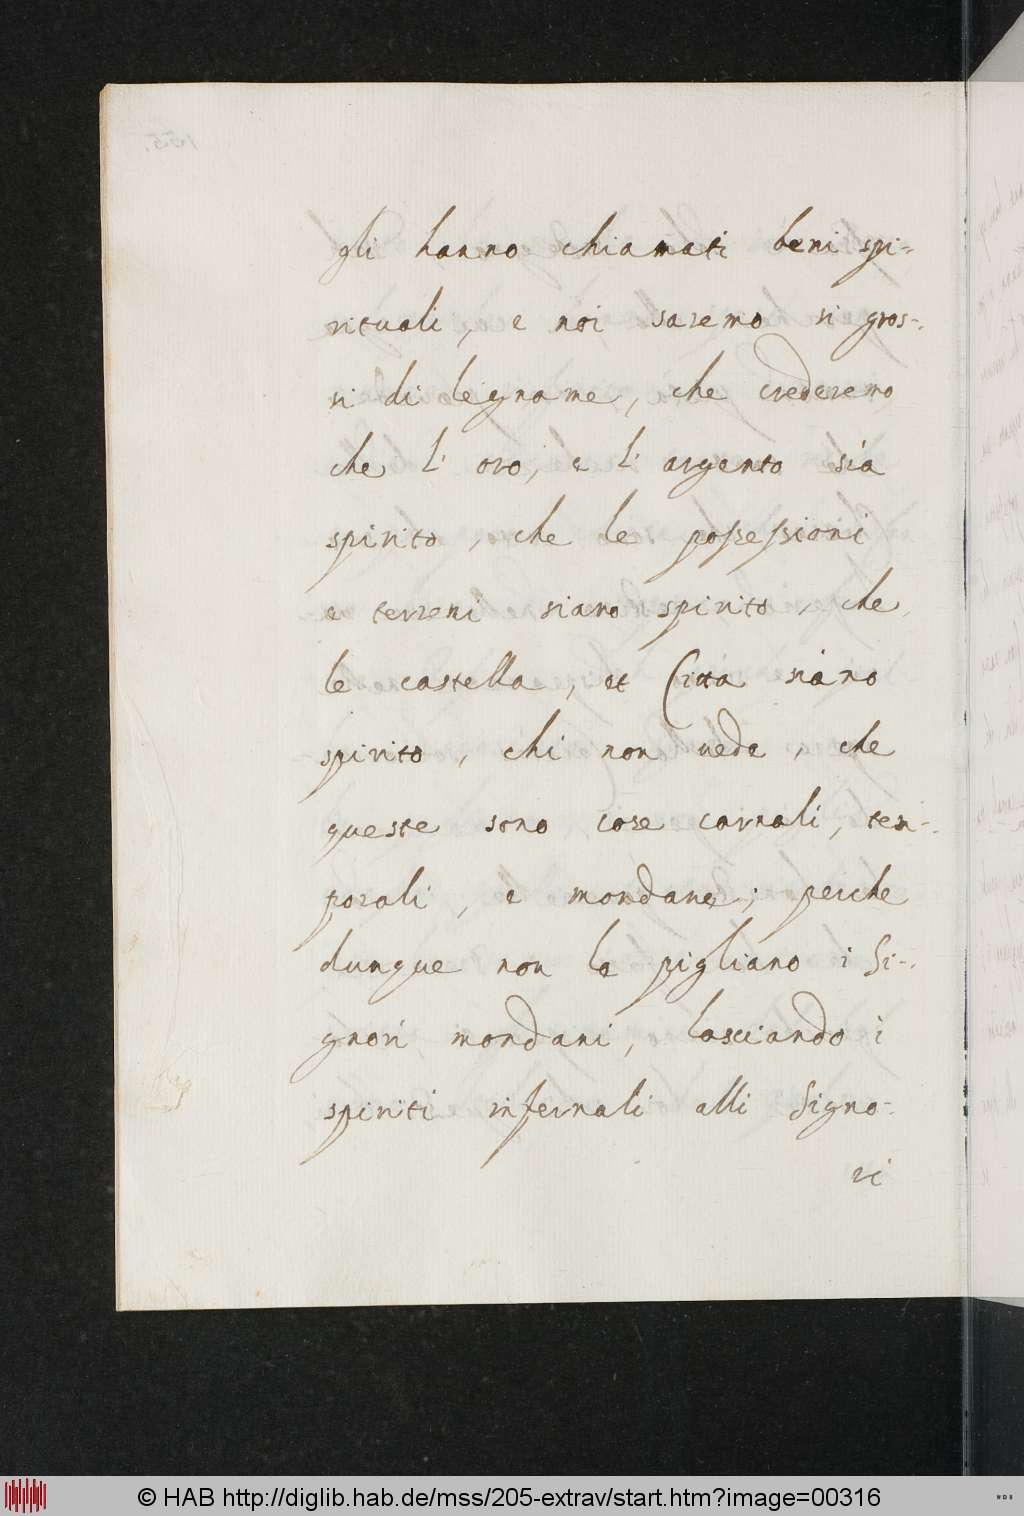 gli hanno chiamati beni spi-
rituali, e noi saremo si gros-
si di legname, che crederemo
che l' oro, e l' argento sia
spirito, che le possessioni
e terreni siano spirito, che
le castella, et Città siano
spirito, chi non uede, che
queste sono cose carnali, tem-
porali, e mondane; perche
dunque non le pigliano i Si-
gnori mondani, lasciando i
spiriti infernali alli Signo-
ri
© HAB http://diglib.hab.de/mss/205-extrav/start.htm?image=00316